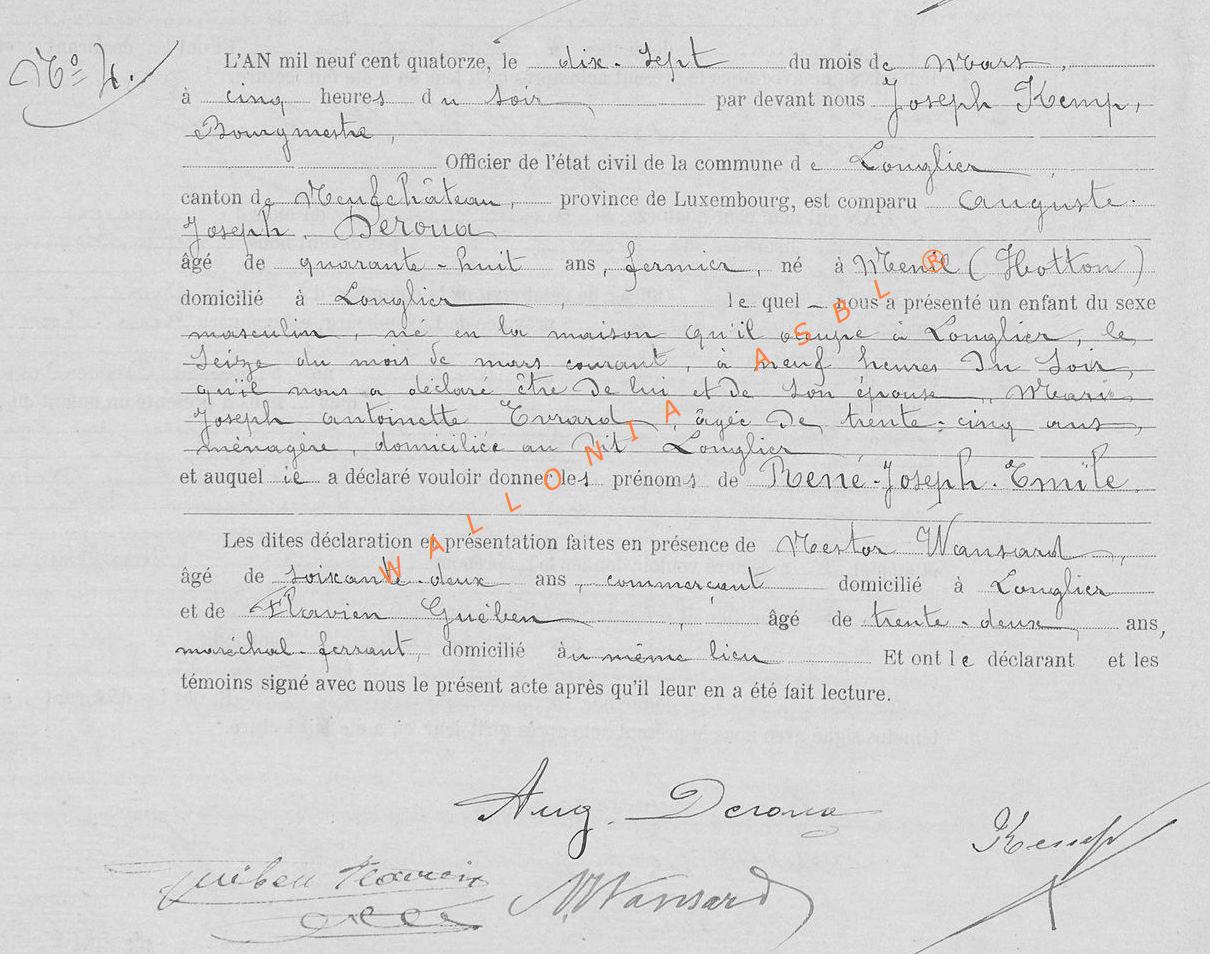 Nº 4.
L'AN mil neuf cent quatorze, le dix-sept du mois de Mars,
à cinq heures du soir par devant nous Joseph Kemp,
Bourgmestre,
Officier de l'état civil de la commune de Longlier
canton de Neufchâteau, province de Luxembourg, est comparu Auguste-
Joseph Deroua
âgé de quarante-huit ans, fermier, né à Menil (Hotton)
domicilié à Longlier, le quel nous a présenté un enfant du sexe
masculin, né en la maison qu'il occupe à Longlier, le
seize du mois de mars courant, à neuf heures du soir,
qu'il nous a déclaré être de lui et de son épouse, Marie
Joseph antoinette Evrard, âgée de trente-cinq ans,
ménagère, domiciliée au dit Longlier
et auquel il a déclaré vouloir donner les prénoms de René-Joseph-Emile.
Les dites déclaration et présentation faites en présence de Nestor Wansard,
âgé de soixante-deux ans, commerçant domicilié à Longlier
et de Flavien Guében, âgé de trente-deux, ans,
maréchal-ferrant, domicilié au même lieu Et ont le déclarant et les
témoins signé avec nous le présent acte après qu'il leur en a été fait lecture.
WALLONIA ASBL ®
Aug. Deroua
Kemp
Guében Flavien
N. Wansard